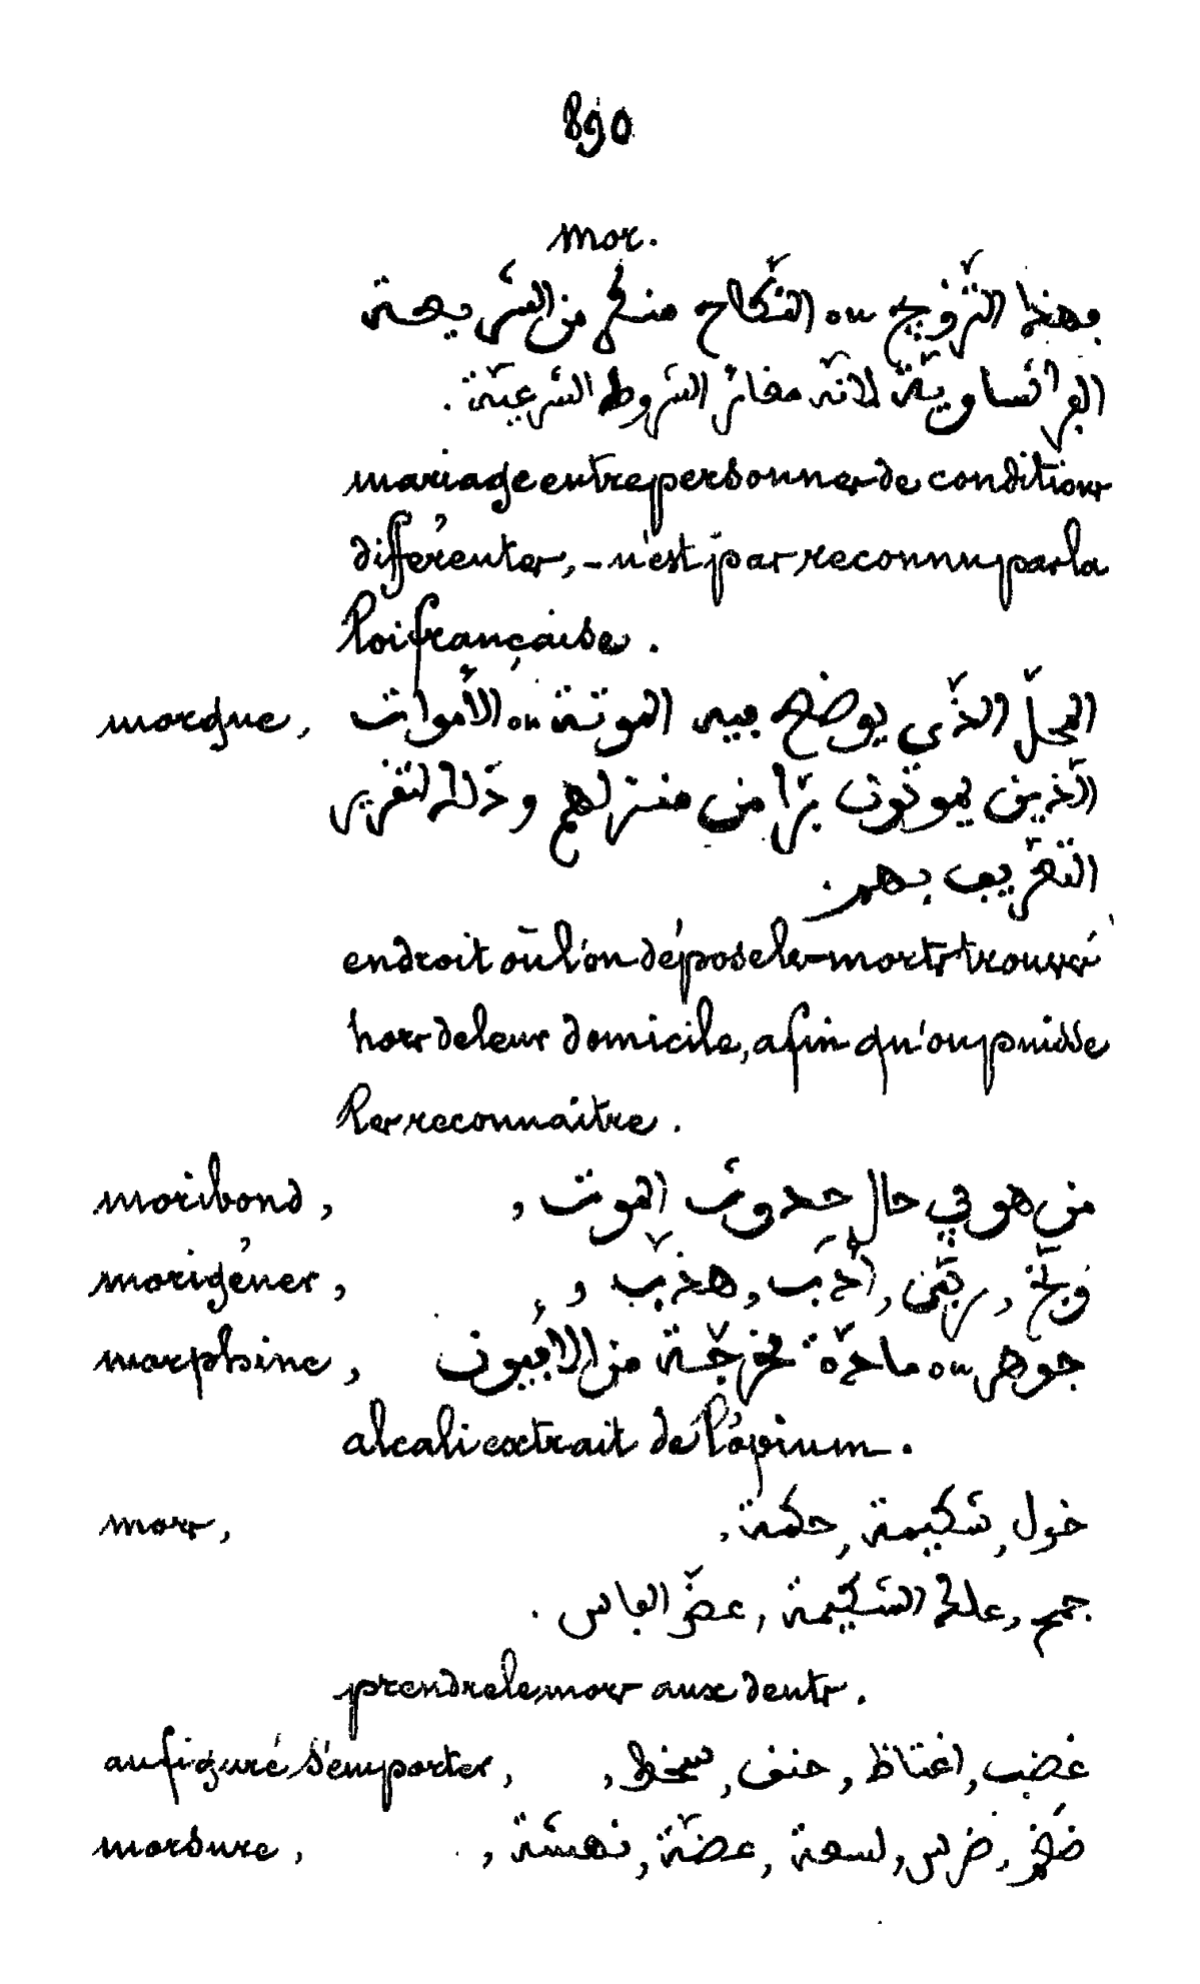 890
mor.
فهذا التّزويج ou النّكاح منكح من الشريعة
الفرانساويّة لانّه مغائر الشروط الشرعيّة .
mariage entre personnes de conditions
différentes, - n'est pas reconnu par la
loi française .
morgue, المحلّ الذّي يوضع فيه الموتة ou الأموات
الّذين يموتون برّا من منزلهم وذلك لتقرير
التعريف بهم .
endroit où l'on dépose les morts trouvés
hors de leur domicile, afin qu'on puisse
les reconnaître .
moribond, من هو في حال حدوث الموت ,
morigéner, وبّخ , ربّى , أدّب , هذّب ,
morphine, جوهر ou مادّة مخرجّة من الأفيون
alcali extrait de l'opium .
mors, شكيمة , حكمة ,
جمح , علك الشكيمة , عضّ الفاس .
prendre le mors aux dents .
au figuré s'emporter, غضب , اغتاظ , حنق , سخط ,
morsure, ضرس , لسعة , عضّة , نهشة ,